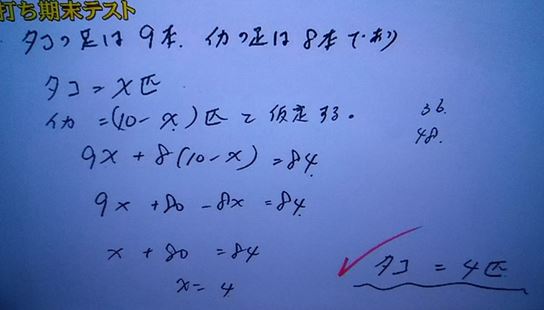 打ち期末テスト
タコの足は9本、イカの足は8本であり
タコ=x匹
イカ =(10-x)匹と仮定する。
36.
48.
9x + 8(10-x) = 84
9x +80 -8x = 84
x + 80 = 84
x = 4
タコ = 4匹